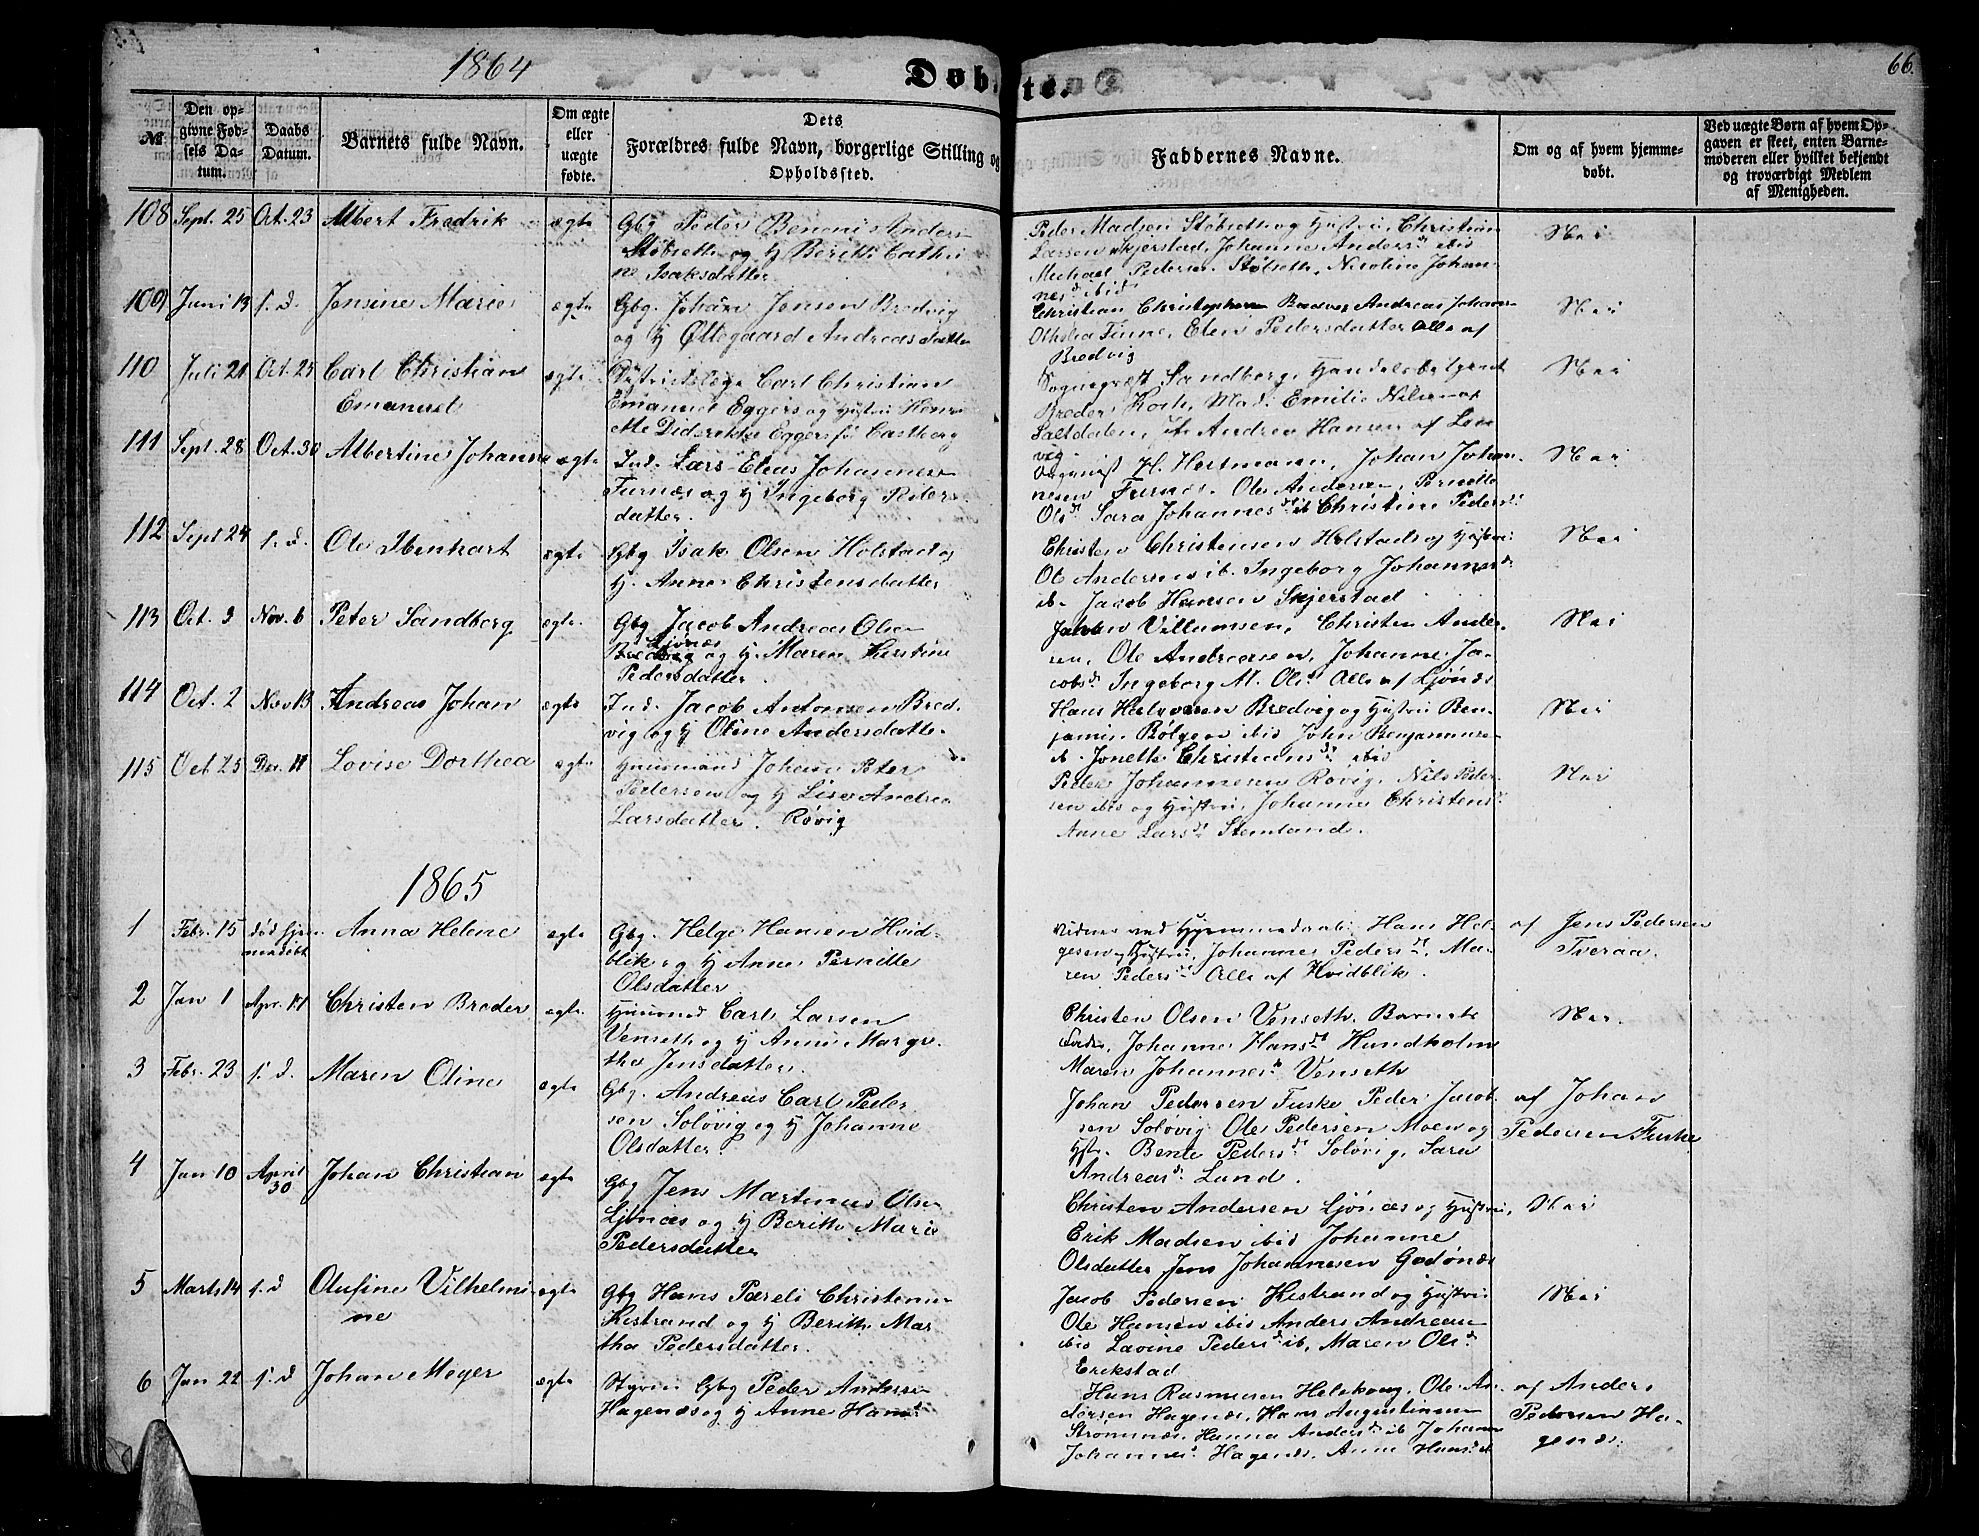 1864
Døbte.
66.
№
Den opgivne Fødsels Datum.
Daabs Datum.
Barnets fulde Navn.
Om ægte eller uægte fødte.
Dets
Forældres fulde Navn, borgerlige Stilling og
Opholdssted.
Faddernes Navne.
Om og af hvem hjemmedøbt.
Ved uægte Børn af hvem Opgaven er skeet, enten Barnemoderen eller hvilket bekjendt og troværdigt Medlem af Menigheden.
108 Sept. 25 Oct. 23 Albert Fredrik ægte Gbg Peder Benoni Anders
Støbseth og H Berith Cathri
ne Isaksdatter
Peder Madsen Støbseth og Hustru, Christian
Larsen Skjerstad, Johanne Andersd ibid
Michael Pedersen Støbseth, Nicoline Johan-
nesd ibid
Nei
109 Juni 19 s. d. Jensine Marie ægte Gbg. Johan Jensen Bredvig
og H Øllegaard Andreasdatter
Christian Christophersen Bredvig Andreas Johann
Finne, Elen Pedersdatter Alle af
Bredvig
Nei
110 Juli 21 Oct. 25 Carl Christian
Emanuel
ægte Distriktslæge Carl Christian
Emanuel Eggers og Hustru Henri
ette Diderikke Eggers før Castberg
Sogneprest Sandberg, Handelsbetjent
Breder Koch, Mad. Emilie Nilsen af
Saltdalen, Andrea Hansen af Løn
vig
Nei
111 Sept. 28 Oct. 30 Albertine Johanne ægte Ind. Lars Elias Johannesen
Furnæs og H Ingeborg Peders
datter.
H. Hartmann, Johan Johan-
nesen Furnæs. Ole Andersen, Pernille
Olsd Sara Johannesd ib Christine Pedersd
Nei
112 Sept 24 s. d. Ole Ibenhart ægte Gbg Isak Olsen Holstad og
H. Anne Christensdatter
Christen Christensen Holstad og Hustru
Ole Andersen ib. Ingeborg Johannesd
ib. Jacob Hansen Skjerstad
Nei
113 Oct. 3 Nov. 6 Peter Sandberg ægte Gbg Jacob Andreas Olsen
Ljønæs
Bredvig og H. Maren Kirstine
Pedersdatter
Villumsen, Christen Ander-
sen, Ole Andreasen, Johanne Ja-
cobsd Ingeborg M. Olsd Alle af Ljønæs
Nei
114 Oct. 2 Nov 13 Andreas Johan ægte Ind. Jacob Antonsen Bred
vig og H Oline Andersdatter
Hans Bredvig og Hustru Ben-
jamin Bølgen ibid John Benjaminsen
ib. Jonette Christiansd ibid
Nei
115 Oct 25 Dec. 11 Lovise Dorthea ægte Huusmand Johan Peter
Pedersen og H Lise Andrea
Larsdatter. Røvig
Peder Johannesen Røvig, Nils Peder
sen ibid og Hustru, Johanne Christensd
Anne Larsd Stemland.
Nei
1865
1 Febr. 15 død hjem
medøbt Anna Helene ægte Gbg. Helge Hansen Hvid-
blik og H Anne Pernille
Olsdatter
Vidner ved Hjemmedaab: Hans Hel-
gesen og Hustru, Johanne Pedersd, Ma-
ren Pedersd Alle af Hvidblik.
af Jens Pedersen
Tveraa.
2 Jan 1 Apr. 17 Christen Breder ægte Huusmd Carl Larsen
Venseth og H Anne Margre
tha Jensdatter
Christen Olsen Venseth. Barnets
Fader, Johanne Hansd Hundholm
Maren Johannesd Venseth
Nei.
3 Febr. 23 s. d. Maren Oline ægte Gbg. Andreas Carl Peder
sen Soløvig og H Johanne
Olsdatter.
Johan Pedersen Fuske Peder Jacob
sen Soløvig Ole Pedersen Moen og
Hstr. Bente Pedersd Soløvig, Sara
Andreasd Lund.
af Johan
Pedersen Fuske
4 Jan 10 April
30 Johan Christian ægte Gbg Jens Martinus Olsen
Ljønæs og H Berith Marie
Pedersdatter
Christen Andersen Ljønæs og Hustru,
Erik Madsen ibid Johanne
Olsdatter Jens Johannesen Godønæs
Nei
5 Marts 14 s. d Olufine Vilhelmi
ne ægte Gbg Hans Pareli Christensen
Kistrand og H Berith Mar
tha Pedersdatter.
Jacob Pedersen Kistrand og Hustru
Ole Hansen ibid Anders Andreasen
ibid Lavine Pedersd ib, Maren Olsd
Erikstad
Nei
6 Jan 22 s. d Johan Meyer ægte Styrm Gbg Peder Andersen
Hagenæs og H Anne Hansd
Hans Rasmussen Ole An-
dersen Hagenæs, Hans Augustinusen
Strømnæs. Hanna Andersd ib Johanna
Johannesd Hagenæs, Anne Hansd ib
af Anders
Pedersen Ha-
genæs.